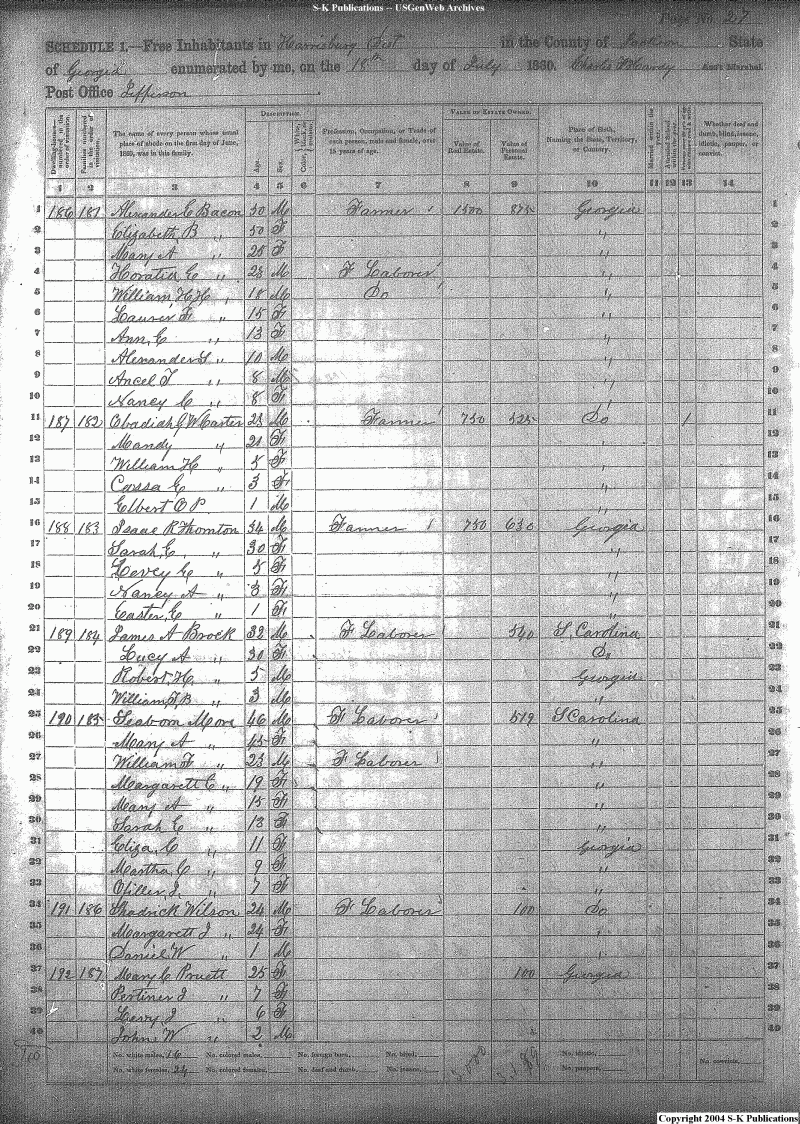 S-K Publications -- USGenWeb Archives
Page No. 27
SCHEDULE 1.—Free Inhabitants in Harrisburg Dist in the County of Jackson State
of Georgia enumerated by me, on the 18th day of July 1860. Charles Hardy Ass't Marshal.
Post Office Jefferson
Dwelling-houses—numbered in the order of visitation.
Families numbered in the order of visitation.
The name of every person whose usual place of abode on the first day of June, 1860, was in this family.
DESCRIPTION.
Age.
Sex.
Color,
Profession, Occupation, or Trade of each person, male and female, over 15 years of age.
VALUE OF ESTATE OWNED.
Value of Real Estate.
Value of Personal Estate.
Place of Birth, Naming the State, Territory, or Country.
Married within the year.
Attended School within the year.
Whether deaf and dumb, blind, insane, idiotic, pauper, or convict.
1 2 3 4 5 6 7 8 9 10 11 12 13 14
1 186 181 Alexander C Bacon 50 M Farmer 1500 875 Georgia 1
2 Elizabeth B " 50 F " 2
3 Mary A " 25 F " 3
4 Horatia C " 23 M F Laborer " 4
5 William H H " 18 M Do " 5
6 F " 15 F " 6
7 Ann C " 13 F " 7
8 Alexander " 10 M " 8
9 Ancel T " 8 M " 9
10 Nancy C " 8 F " 10
11 187 182 Obadiah G W Carter 23 M Farmer 750 525 Do 1 11
12 Mandy " 21 F " 12
13 William H " 5 " 13
14 Cassa C " 3 F " 14
15 Elbert O P 1 M " 15
16 188 183 Isaac R Thornton 34 M Farmer 750 630 Georgia 16
17 Sarah C " 30 F " 17
18 Levey C " 5 F " 18
19 Nancy A " 3 F " 19
20 Easter C " 1 F " 20
21 189 184 James A Brock 32 M F Laborer 540 S. Carolina 21
22 Lucy A " 30 F Do 22
23 Robert H " 5 M Georgia 23
24 William B " 3 M " 24
25 190 185 Seaborn More 46 M F Laborer 519 S Carolina 25
26 Mary A " 45 F " 26
27 William F " 23 M F Laborer " 27
28 Margarett C " 19 F " 28
29 Mary A " 15 F " 29
30 Sarah C " 13 F " 30
31 Eliza C " 11 F Georgia 31
32 Martha C " 9 F " 32
33 J " 7 F " 33
34 191 186 Shadrick Wilson 24 M F Laborer 100 Do 34
35 Margarett J " 24 F " 35
36 Daniel W " 1 M " 36
37 192 187 Mary C Pruett 25 F 100 Georgia 37
38 J " 7 F 38
39 Levy J " 6 F 39
40 John W " 2 M 40
No. white males, 16 No. colored males, No. foreign born, No. blind, No. idiotic,
No. white females, 24 No. colored females, No. deaf and dumb, No. insane, No. paupers, No. convicts,
Copyright 2004 S-K Publications